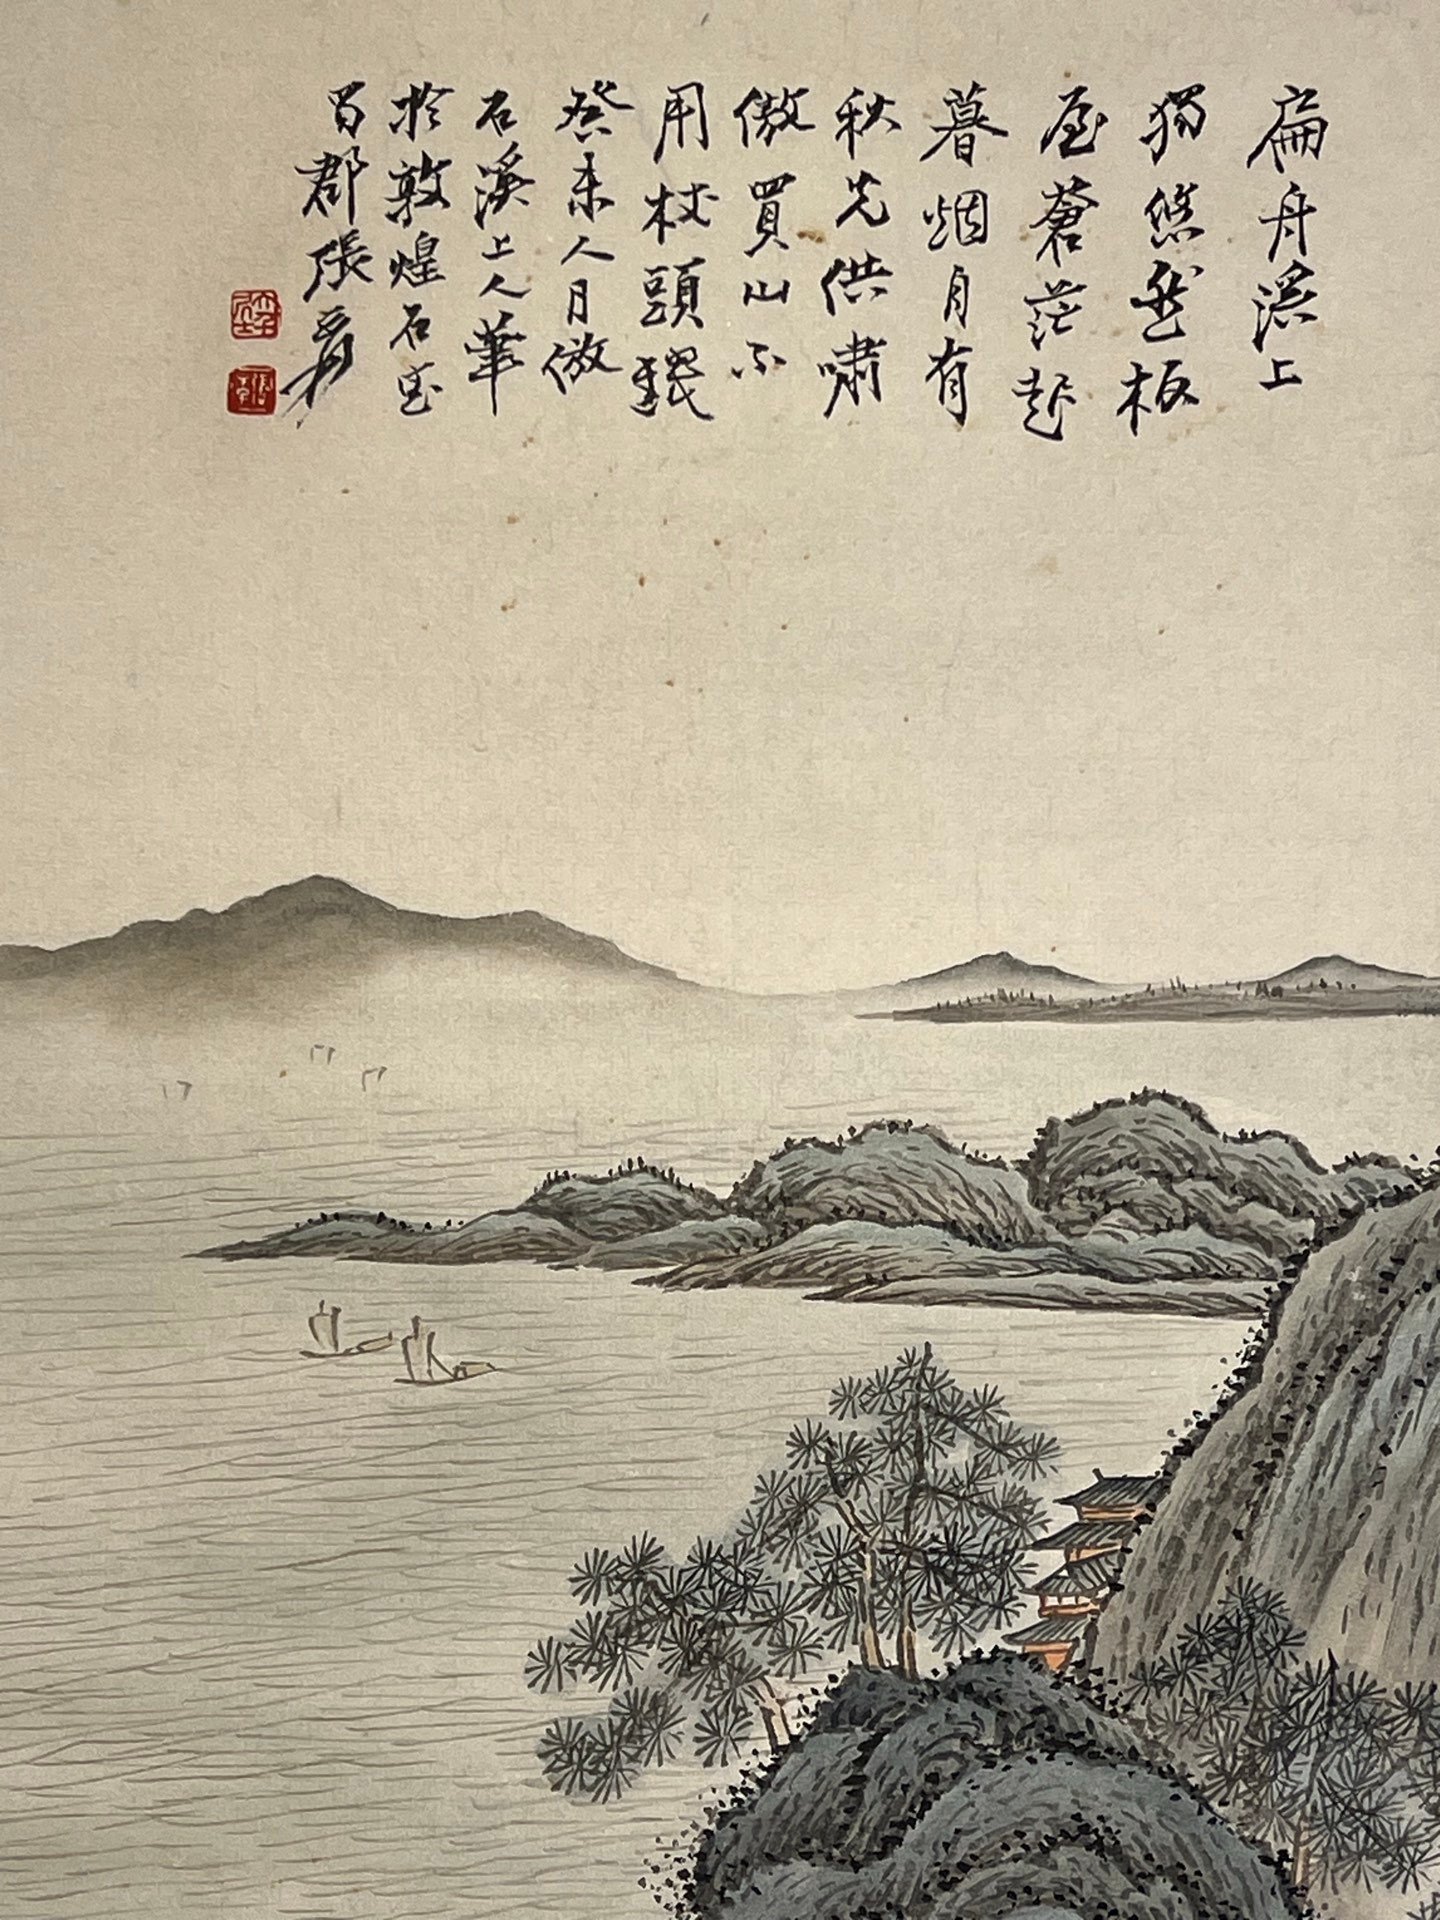 扁舟溪上
獨悠然板
屋蒼茫起
暮烟月有
秋光供嘯
傲買山不
用杖頭錢
癸未八月倣
石溪上人筆
於敦煌石室
蜀郡張爰